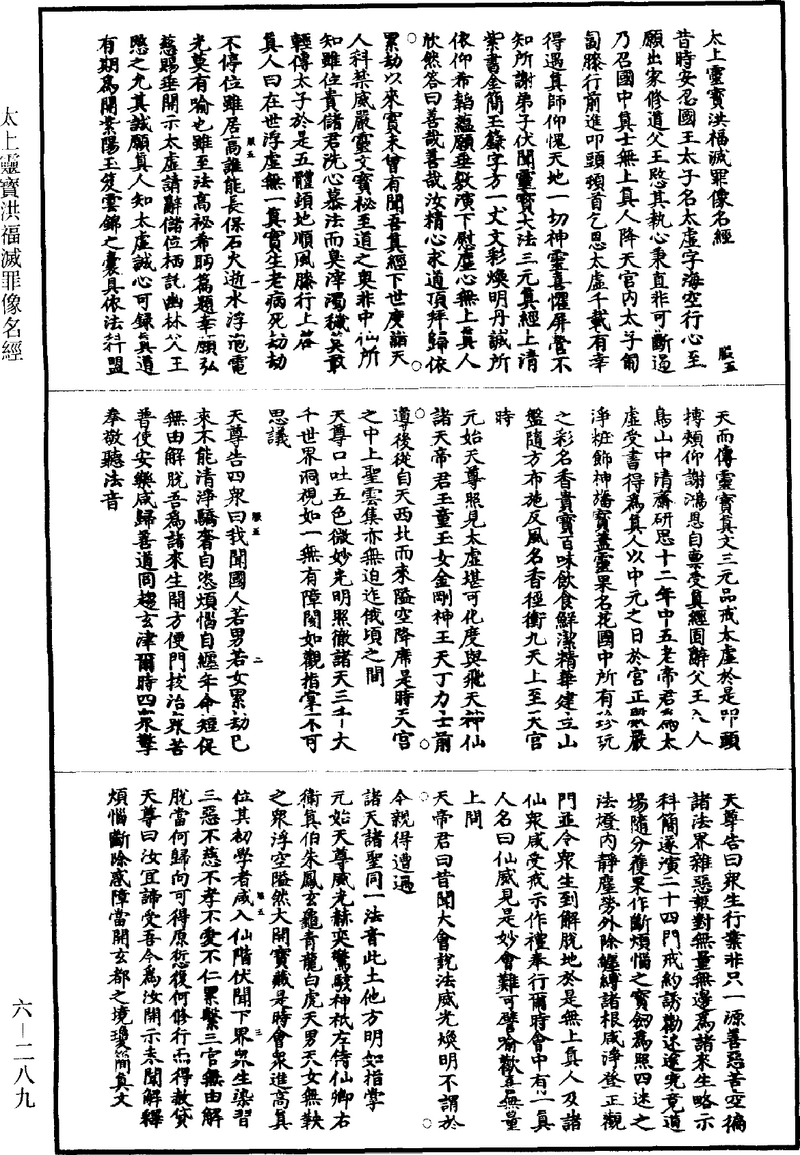 太上靈寶洪福滅罪像名經
服五
昔時安忍國王太子名太虛字海空行心至
願出家修道父王愍其執心秉直非可斷過
乃召國中真士無上真人降天官內太子匍
匐膝行前進叩頭頓首乞恩太虛千載有幸
得遇真師仰愧天地一切神靈喜懼屏營不
知所謝弟子伏聞靈寶大法三元真經上清
紫書金簡玉籙字方一丈文彩煥明丹誠所
依仰希韜蘊願垂敷演下慰虛心無上真人
欣然答曰善哉善哉汝精心求道頂拜歸依
累劫以來實未曾有聞吾真經下世度諸天
人科禁威嚴靈文寶秘至道之奧非中仙所
知雖位貴儲君洗心慕法而臭滓濁穢莫敢
輕傳太子於是五體頭地順風膝行上答
真人曰在世浮虛無一真實生老病死劫劫
不停位雖居高誰能長保石火逝水浮泡電
光莫有喻也雖至法高祕希睎篇題幸願弘
慈賜垂開示太虛請辭儲位栖託幽林父王
愍之允其誠願真人知太虛誠心可錄真道
有期為開紫陽玉笈雲錦之囊具依法科盟
天而傳靈寶真文三元品戒太虛於是叩頭
搏頰仰謝鴻恩自稟受真經固辭父王入人
鳥山中清齋研思十二年中五老帝君為太
虛受書得為真人以中元之日於宮正殿嚴
淨粧飾神旛寶蓋靈果名花國中所有珍玩
之彩名香貴寶百味飲食鮮潔精華建立山
盤隨方布施反風名香徑衝九天上至天宮
時
元始天尊照見太虛堪可化度與飛天神仙
諸天帝君玉童玉女金剛神王天丁力士前
導後從自天西北而來隘空降席是時天宮
之中上聖雲集亦無迫迮俄頃之間
天尊口吐五色微妙光明照徹諸天三千大
千世界洞視如一無有障閡如觀指掌不可
思議
天尊告四眾曰我聞國人若男若女累劫已
來不能清淨驕奢自恣煩惱自纏年命短促
無由解脫吾為諸來生開方便門拔治眾苦
普使安樂咸歸善道同趨玄津爾時四眾擎
奉敬聽法音
天尊告曰眾生行業非只一源善惡苦空徧
諸法界雜惡報對無量無邊為諸來生略示
科簡遂演二十四門戒約誘勸迷途究竟道
場隨分獲果作斷煩惱之寶劒為照四迷之
法燈內靜塵勞外除纏縛諸根咸淨登正觀
門並令眾生到解脫地於是無上真人及諸
仙眾咸受戒示作禮奉行爾時會中有一真
人名曰仙威見是妙會難可譬喻歡喜無量
上問
天帝君曰昔聞大會說法威光煥明不謂於
今親得遭遇
諸天諸聖同一法音此土他方明如指掌
元始天尊威光赫奕驚駭神祇左侍仙卿右
衛真伯朱鳳玄龜青龍白虎天男天女無鞅
之眾浮空隘然大開寶藏是時會眾進高真
位其初學者咸入仙階伏聞下界眾生染習
三惡不慈不孝不愛不仁累繫三官無由解
脫當何歸向可得原愆復何修行而得救貸
天尊曰汝宜諦受吾今為汝開示未聞解釋
煩惱斷除惑障當開玄都之境瓊簡真文
太上靈寶洪福滅罪像名經
六－二八九